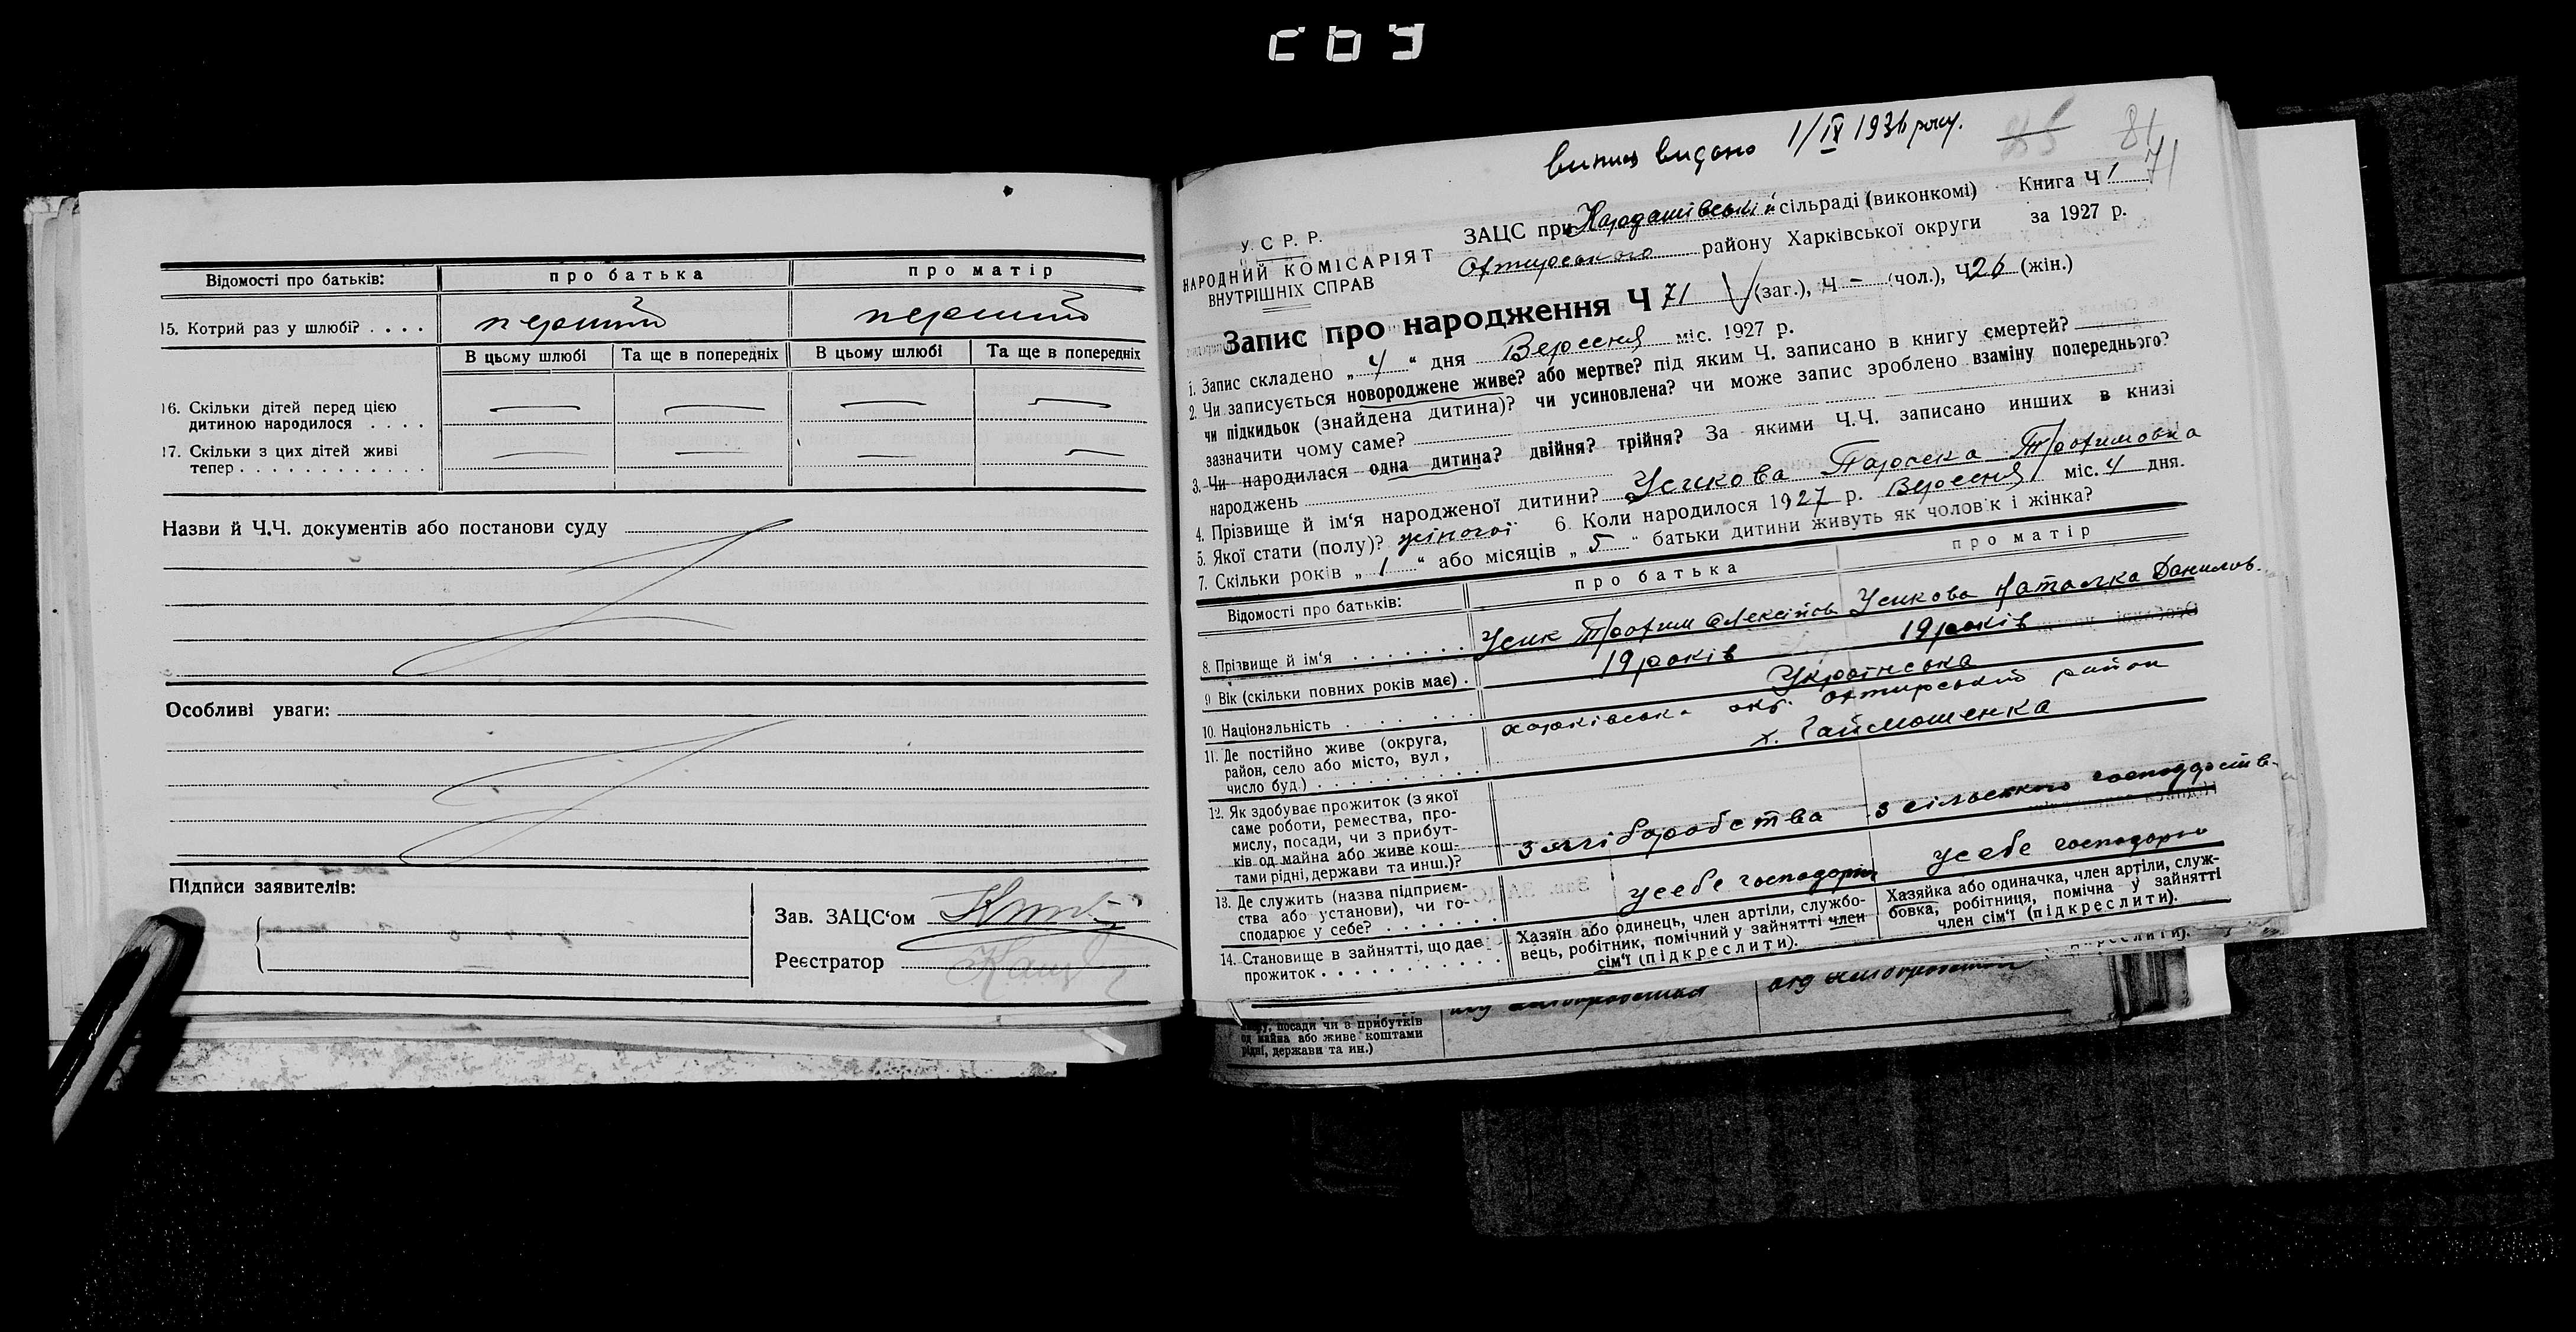 Відомості про батьків: про батька про матір
15. Котрий раз у шлюбі? . . . . перший перший
В цьому шлюбі Та ще в попередніх В цьому шлюбі Та ще в попередніх
16. Скільки дітей перед цією
дитиною народилося . . . . — — — —
17. Скільки з цих дітей живі
тепер . . . . . . . . . . . . — — — —
Назви й Ч.Ч. документів або постанови суду
Особливі уваги:
Підписи заявителів:
Зав. ЗАЦС‘ом
Реєстратор
випис видано 1/IX 1936 року.
85 81
71
У. С. Р. Р.
НАРОДНИЙ КОМІСАРІЯТ
ВНУТРІШНІХ СПРАВ
ЗАЦС при сільраді (виконкомі) Книга Ч 1
Охтирського району Харківської округи за 1927 р.
Запис про народження Ч 71 (заг.), Ч – (чол.), Ч 26 (жін.)
1. Запис складено „ 4 “ дня Вересня міс. 1927 р.
2. Чи записується новороджене живе? або мертве? під яким Ч. записано в книгу смертей?
чи підкидьок (знайдена дитина)? чи усиновлена? чи може запис зроблено взаміну попереднього?
зазначити чому саме?
3. Чи народилася одна дитина? двійня? трійня? За якими Ч.Ч. записано инших в книзі
народжень
4. Прізвище й ім‘я народженої дитини? Усикова Параска Трохимовна
5. Якої стати (полу)? жіночої 6. Коли народилося 1927 р. Вересня міс. 4 дня.
7. Скільки років „ 1 “ або місяців „ 5 “ батьки дитини живуть як чоловік і жінка?
Відомості про батьків: про батька про матір
8. Прізвище й ім‘я . . . . . . . Усик Трохим Олексійов Усикова Наталка Данилов.
9. Вік (скільки повних років має) . 19 років 19 років
10. Національність . . . . . . . Українська
11. Де постійно живе (округа,
район, село або місто, вул,
число буд.) . . . . . . . . . Харківськ. окр. Охтирський район
х. Гаймошенка
12. Як здобуває прожиток (з якої
саме роботи, ремества, про-
мислу, посади, чи з прибут-
ків од майна або живе кош-
тами рідні, держави та инш.)? з хліборобства з сільського господарств-
13. Де служить (назва підприєм-
ства або установи), чи го-
сподарює у себе? . . . . . . усебе господарює усебе господарює
14. Становище в зайнятті, що дає
прожиток . . . . . . . . . . .
Хазяїн або одинець, член артіли, службо-
вець, робітник, помічний у зайнятті член
сім‘ї (підкреслити).
Хазяйка або одиначка, член артіли, служ-
бовка, робітниця, помічна у зайнятті
член сім‘ї (підкреслити).
посади чи з прибутків
од майна або живе коштами
рідні, держави та ин.)